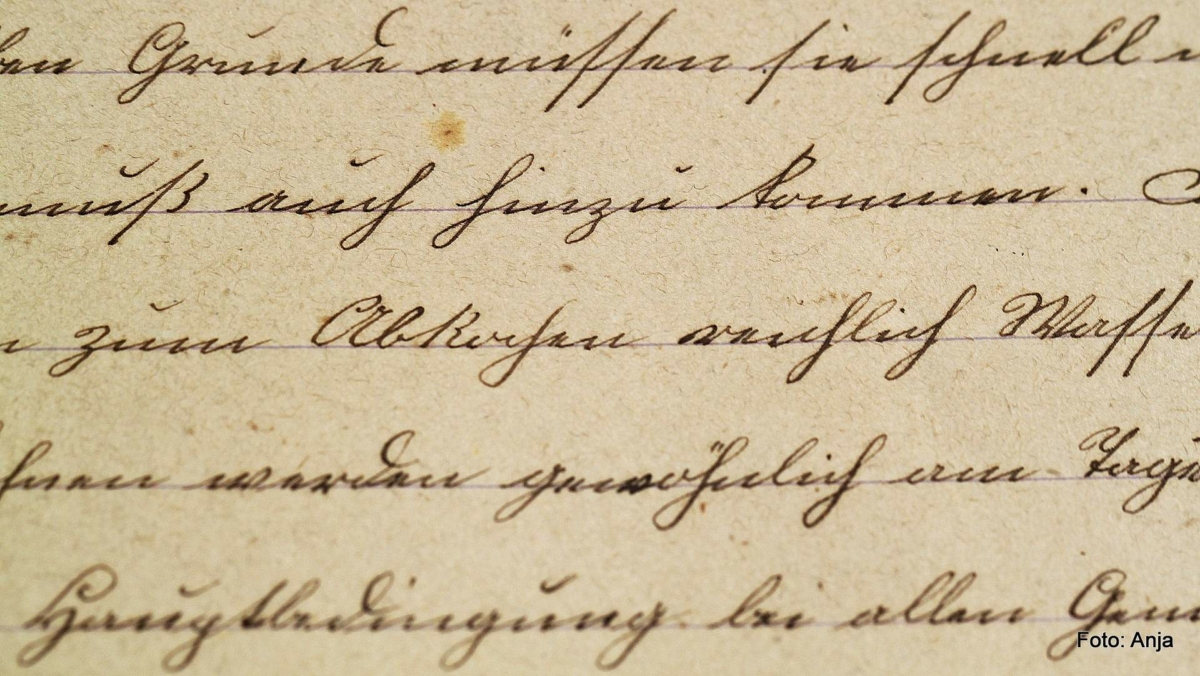 ben Grunde müssen sie schnell
muß auch hinzu kommen.
n zum Abkochen reichlich Wasse
hnen werden gewöhnlich am Tage
Hauptbedingung bei allen Gem
Foto: Anja